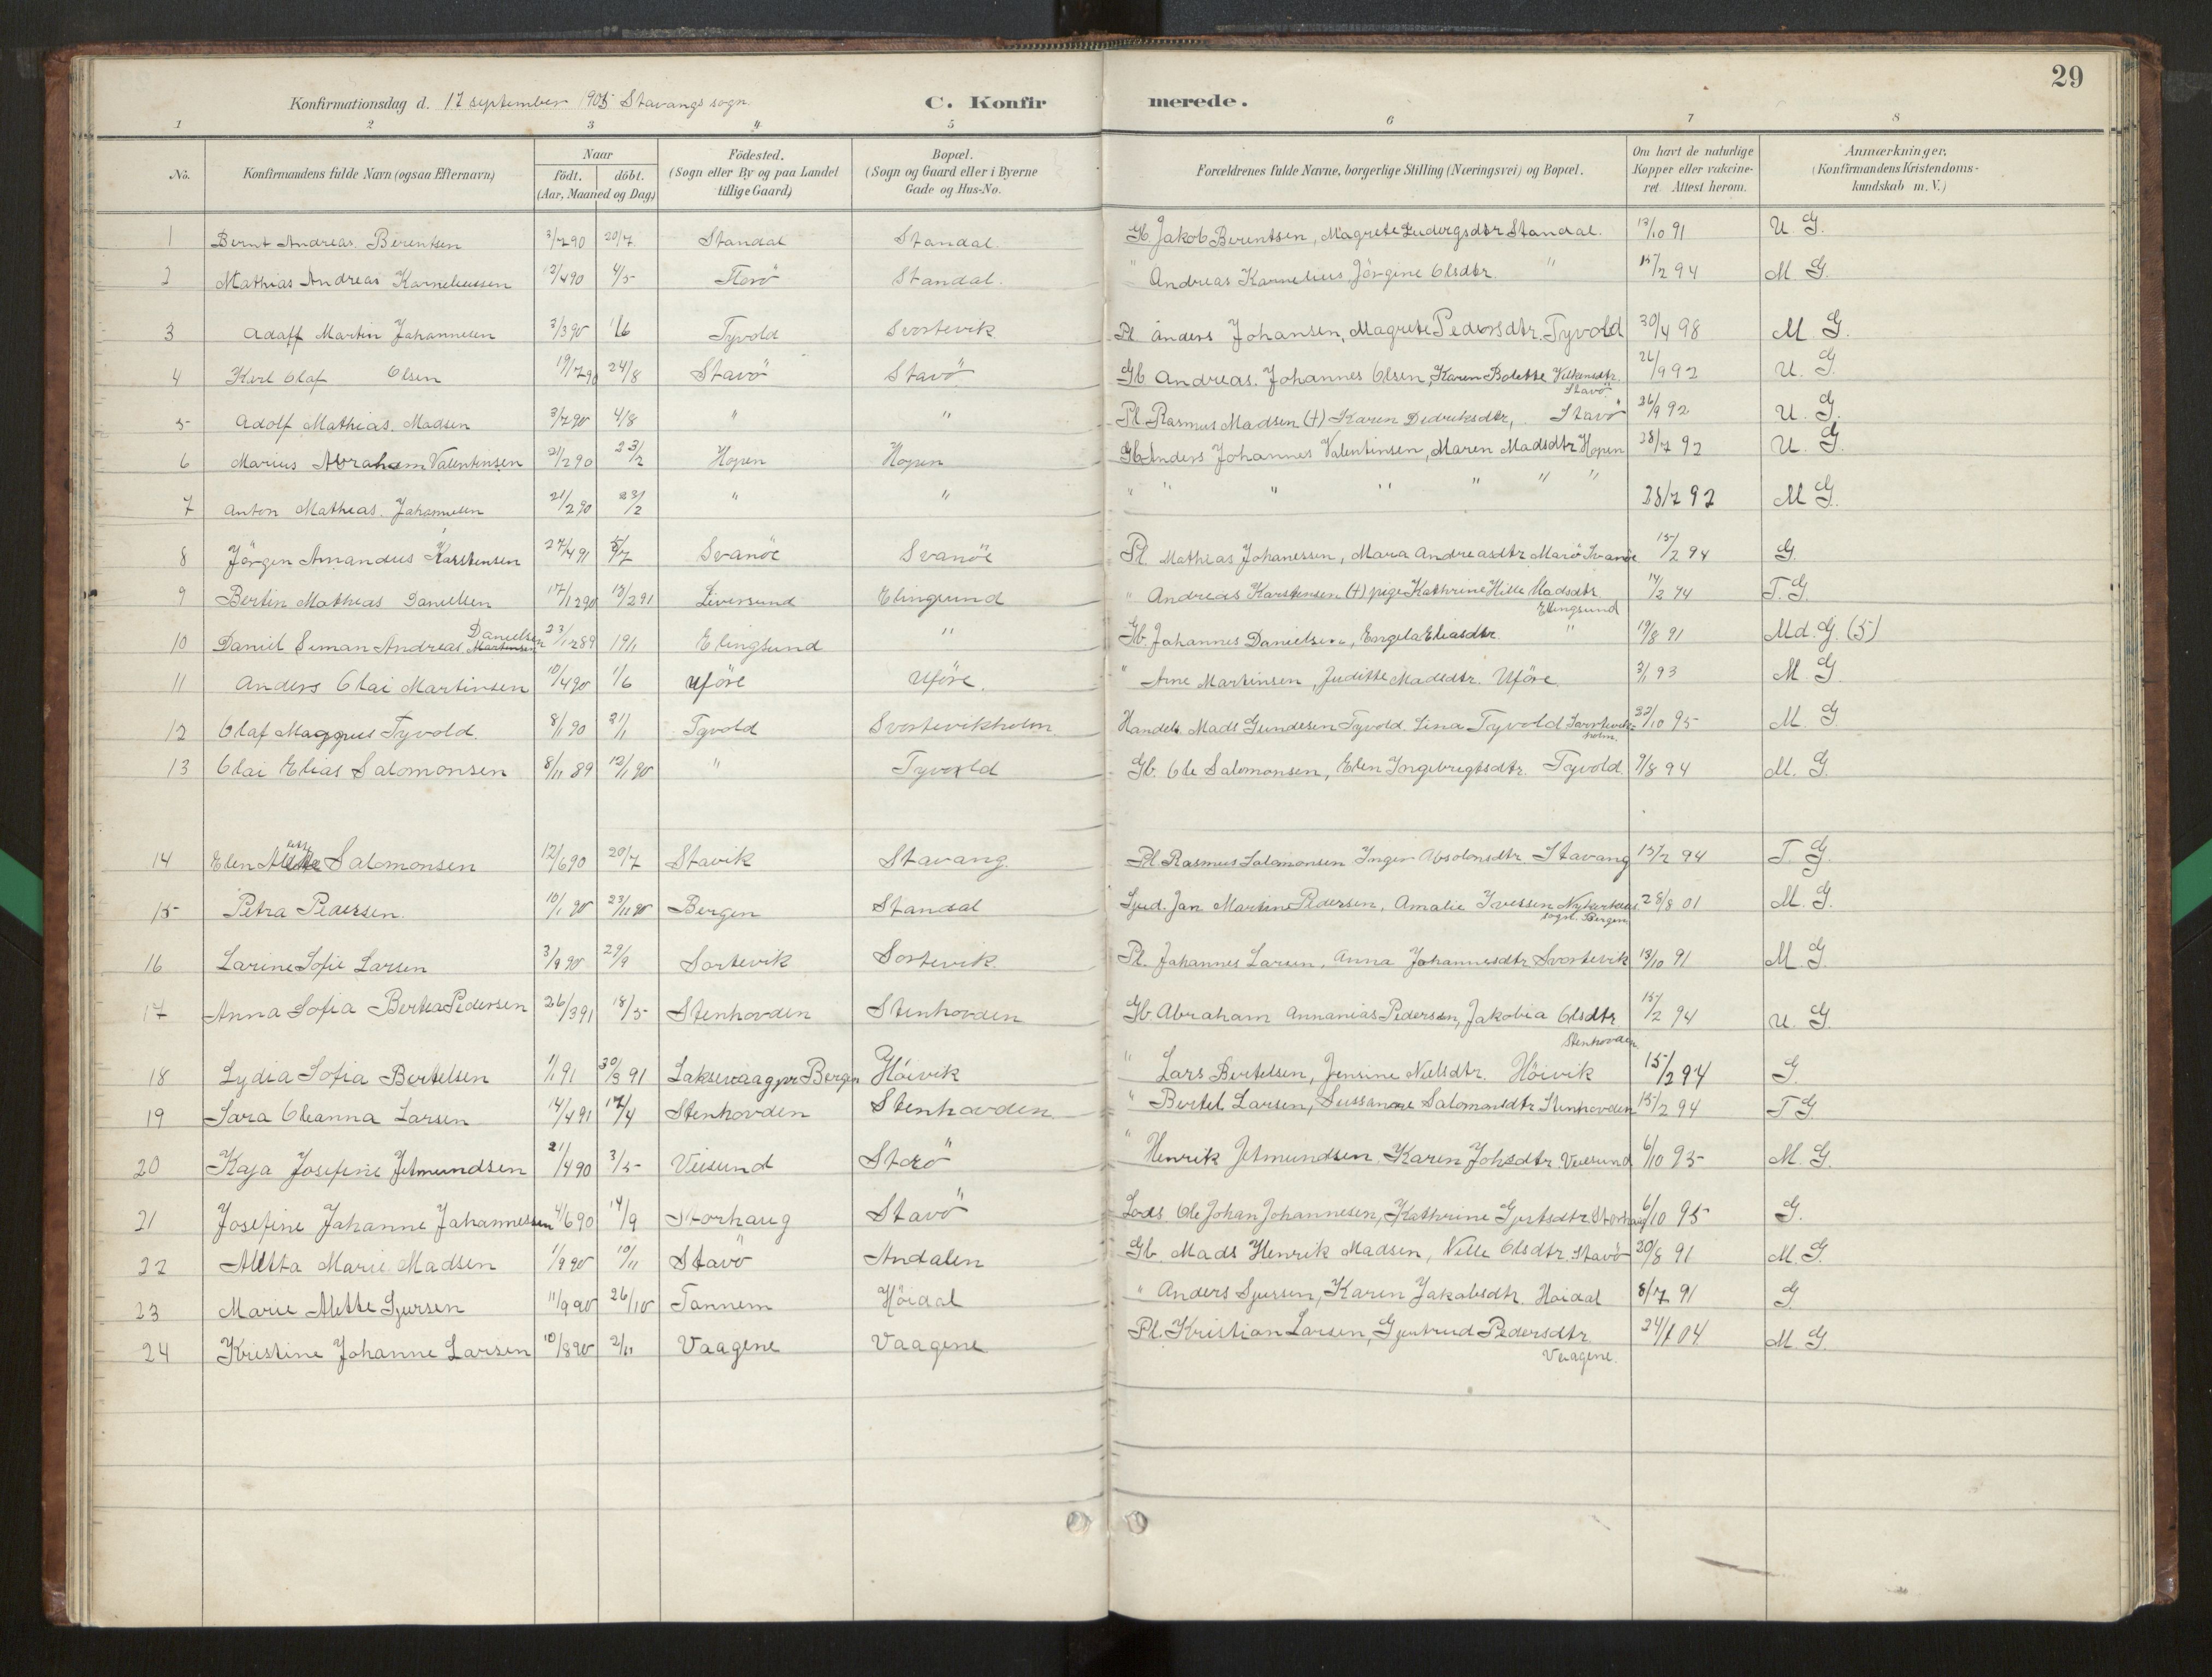 29
Konfirmationsdag d. 17 september 1905 Stavangs sogn. C. Konfirmerede.
1 2 3 4 5 6 7 8
No. Konfirmandens fulde Navn (ogsaa Efternavn) Naar födt. döbt. (Aar, Maaned og Dag) Födested. (Sogn eller By og paa Landet tillige Gaard) Bopæl. (Sogn og Gaard eller i Byerne Gade og Hus-No. Forældrenes fulde Navne, borgerlige Stilling (Næringsvei) og Bopæl. Om havt de naturlige Kopper eller vakcineret. Attest herom. Anmærkninger. (Konfirmandens Kristendomskundskab m. V.)
1 Bernt Andreas Berentsen 3/7 90 20/7 Standal Standal. Jakob Berentsen, Magrete Ludvigsdtr Standal. 13/10 91 U. G.
2 Mathias Andreas Karneliussen 12/4 90 4/5 Florö Standal. " Andreas Karnelius, Jörgine Olsdtr. " 15/2 94 M. G.
3 Adolf Martin Johannesen 3/3 90 1/6 Tyvold Svortevik Pl. Anders Johansen, Magrete Pedersdtr. Tyvold 30/4 98 M G.
4 Karl Olaf Olsen 19/7 90 24/8 Stavö Stavö Gb. Andreas Johannes Olsen, Karen Bolette Villumsdtr. Stavö 26/9 92 U. G.
5 Adolf Mathias Madsen 3/7 90 4/8 " " Pl. Rasmus Madsen (+) Karen Didriksdtr, Stavö 26/9 92 U. G.
6 Marius Abraham Valentinsen 21/2 90 23/2 Hopen Hopen Gb. Anders Johannes Valentinsen, Maren Madsdtr. Hopen 28/7 92 U. G.
7 Anton Mathias Johannesen 21/2 90 23/2 " " " " " " " " " 28/7 92 M G.
8 Jörgen Amandus Karstensen 27/4 91 5/7 Svanöe Svanöe Pl. Mathias Johanessen, Mara Andreasdtr Marö Svanöe 15/2 94 G.
9 Bertin Mathias Danielsen 17/12 90 13/2 91 Liversund Elingsund " Andreas Karstensen (+) pige Kathrine Hille Madsdtr. Elingsund 14/2 94 T. G.
10 Daniel Siman Andreas Martinsen Danielsen 23/12 89 19/1 Elingsund " Gb. Johannes Danielsen, Engela Eliasdtr. " 19/8 91 Md. G. (5)
11 Anders Olai Martinsen 10/4 90 1/6 Uföre Uföre. " Arne Martinsen, Juditte Madsdtr. Uföre. 3/1 93 M. G.
12 Olaf Magnus Tyvold 8/1 90 21/1 Tyvold Svortevikholm Handels. Mads Gundesen Tyvold. Lina Tyvold Svortevikholm. 22/10 95 M. G.
13 Olai Elias Salomonsen 8/11 89 12/1 90 " Tyvold Gb. Ole Salomonsen, Elen Ingebrigtsdtr. Tyvold. 9/8 94 M. G.
14 Elen Salomonsen 12/6 90 20/7 Stavik Stavang Pl. Rasmus Salomonsen Inger Absolonsdtr. Stavang 15/2 94 T. G.
15 Petra Pedersen. 10/1 90 23/11 90 Bergen Standal Jan Martin Pedersen, Amalie Ivessen Nykirkens sogn. Bergen 28/8 01 M. G.
16 Larine Sofie Larsen 3/9 90 29/9 Sortevik Sortevik. Pl. Johannes Larsen, Anna Johannesdtr. Svortevik 13/10 91 M. G.
17 Anna Sofia Bertea Pedersen 26/3 91 18/5 Stenhovden Stenhovden Gb. Abraham Annanias Pedersen, Jakobia Olsdtr Stenhovden 15/2 94 U. G.
18 Lydia Sofia Bertelsen 1/1 91 30/3 91 Laksevaag pr Bergen Höivik " Lars Bertelsen, Jensine Nielsdtr. Höivik 15/2 94 G.
19 Sara Oleanna Larsen 14/4 91 17/4 Stenhovden Stenhovden " Bertel Larsen, Sussanne Salomonsdtr Stenhovden 15/2 94 T G
20 Kaja Josefine Jetmundsen 21/4 90 3/5 Veisund Storö " Henrik Jetmundsen. Karen Johsdtr. Veiesund 6/10 95 M. G.
21 Josefine Johanne Johannessen 4/6 90 14/9 Storhaug Stavö Lods Ole Johan Johannesen, Kathrine Gjertsdtr. Storhaug 6/10 95 G.
22 Aletta Marie Madsen 1/9 90 10/11 Stavö Andalen Gb. Mads Henrik Madsen, Nille Olsdtr. Stavö 20/8 91 M. G.
23 Marie Alette Sjursen 11/9 90 26/10 Tannem Höidal " Anders Sjursen, Karen Jakobsdtr. Höidal 8/7 91 G.
24 Kristine Johanne Larsen 10/8 90 2/11 Vaagene Vaagene Pl. Kristian Larsen, Gjertrud Pedersdtr Vaagene. 24/1 04 M. G.